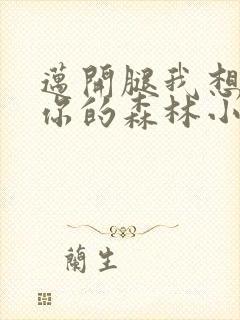 邁開腿我想
你的森林小
蘭生